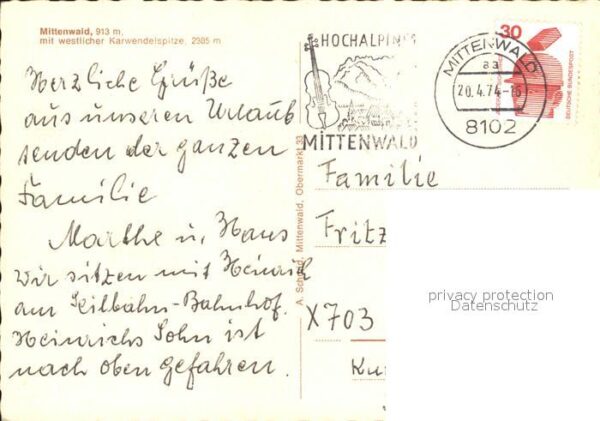 Mittenwald, 913 m,
mit westlicher Karwendelspitze, 2385 m
Herzliche Grüße
aus unseren Urlaub
senden der ganzen
Familie
Marthe u. Hans
wir sitzen mit Heinrich
am Seilbahn-Bahnhof.
Heinrichs Sohn ist
nach oben gefahren.
A. Mittenwald, Obermarkt 33
HOCHALPINES
MITTENWALD
MITTENWALD
aa
20.4.74-15
8102
30
DEUTSCHE BUNDESPOST
Familie
Fritz
X703
privacy protection
Datenschutz